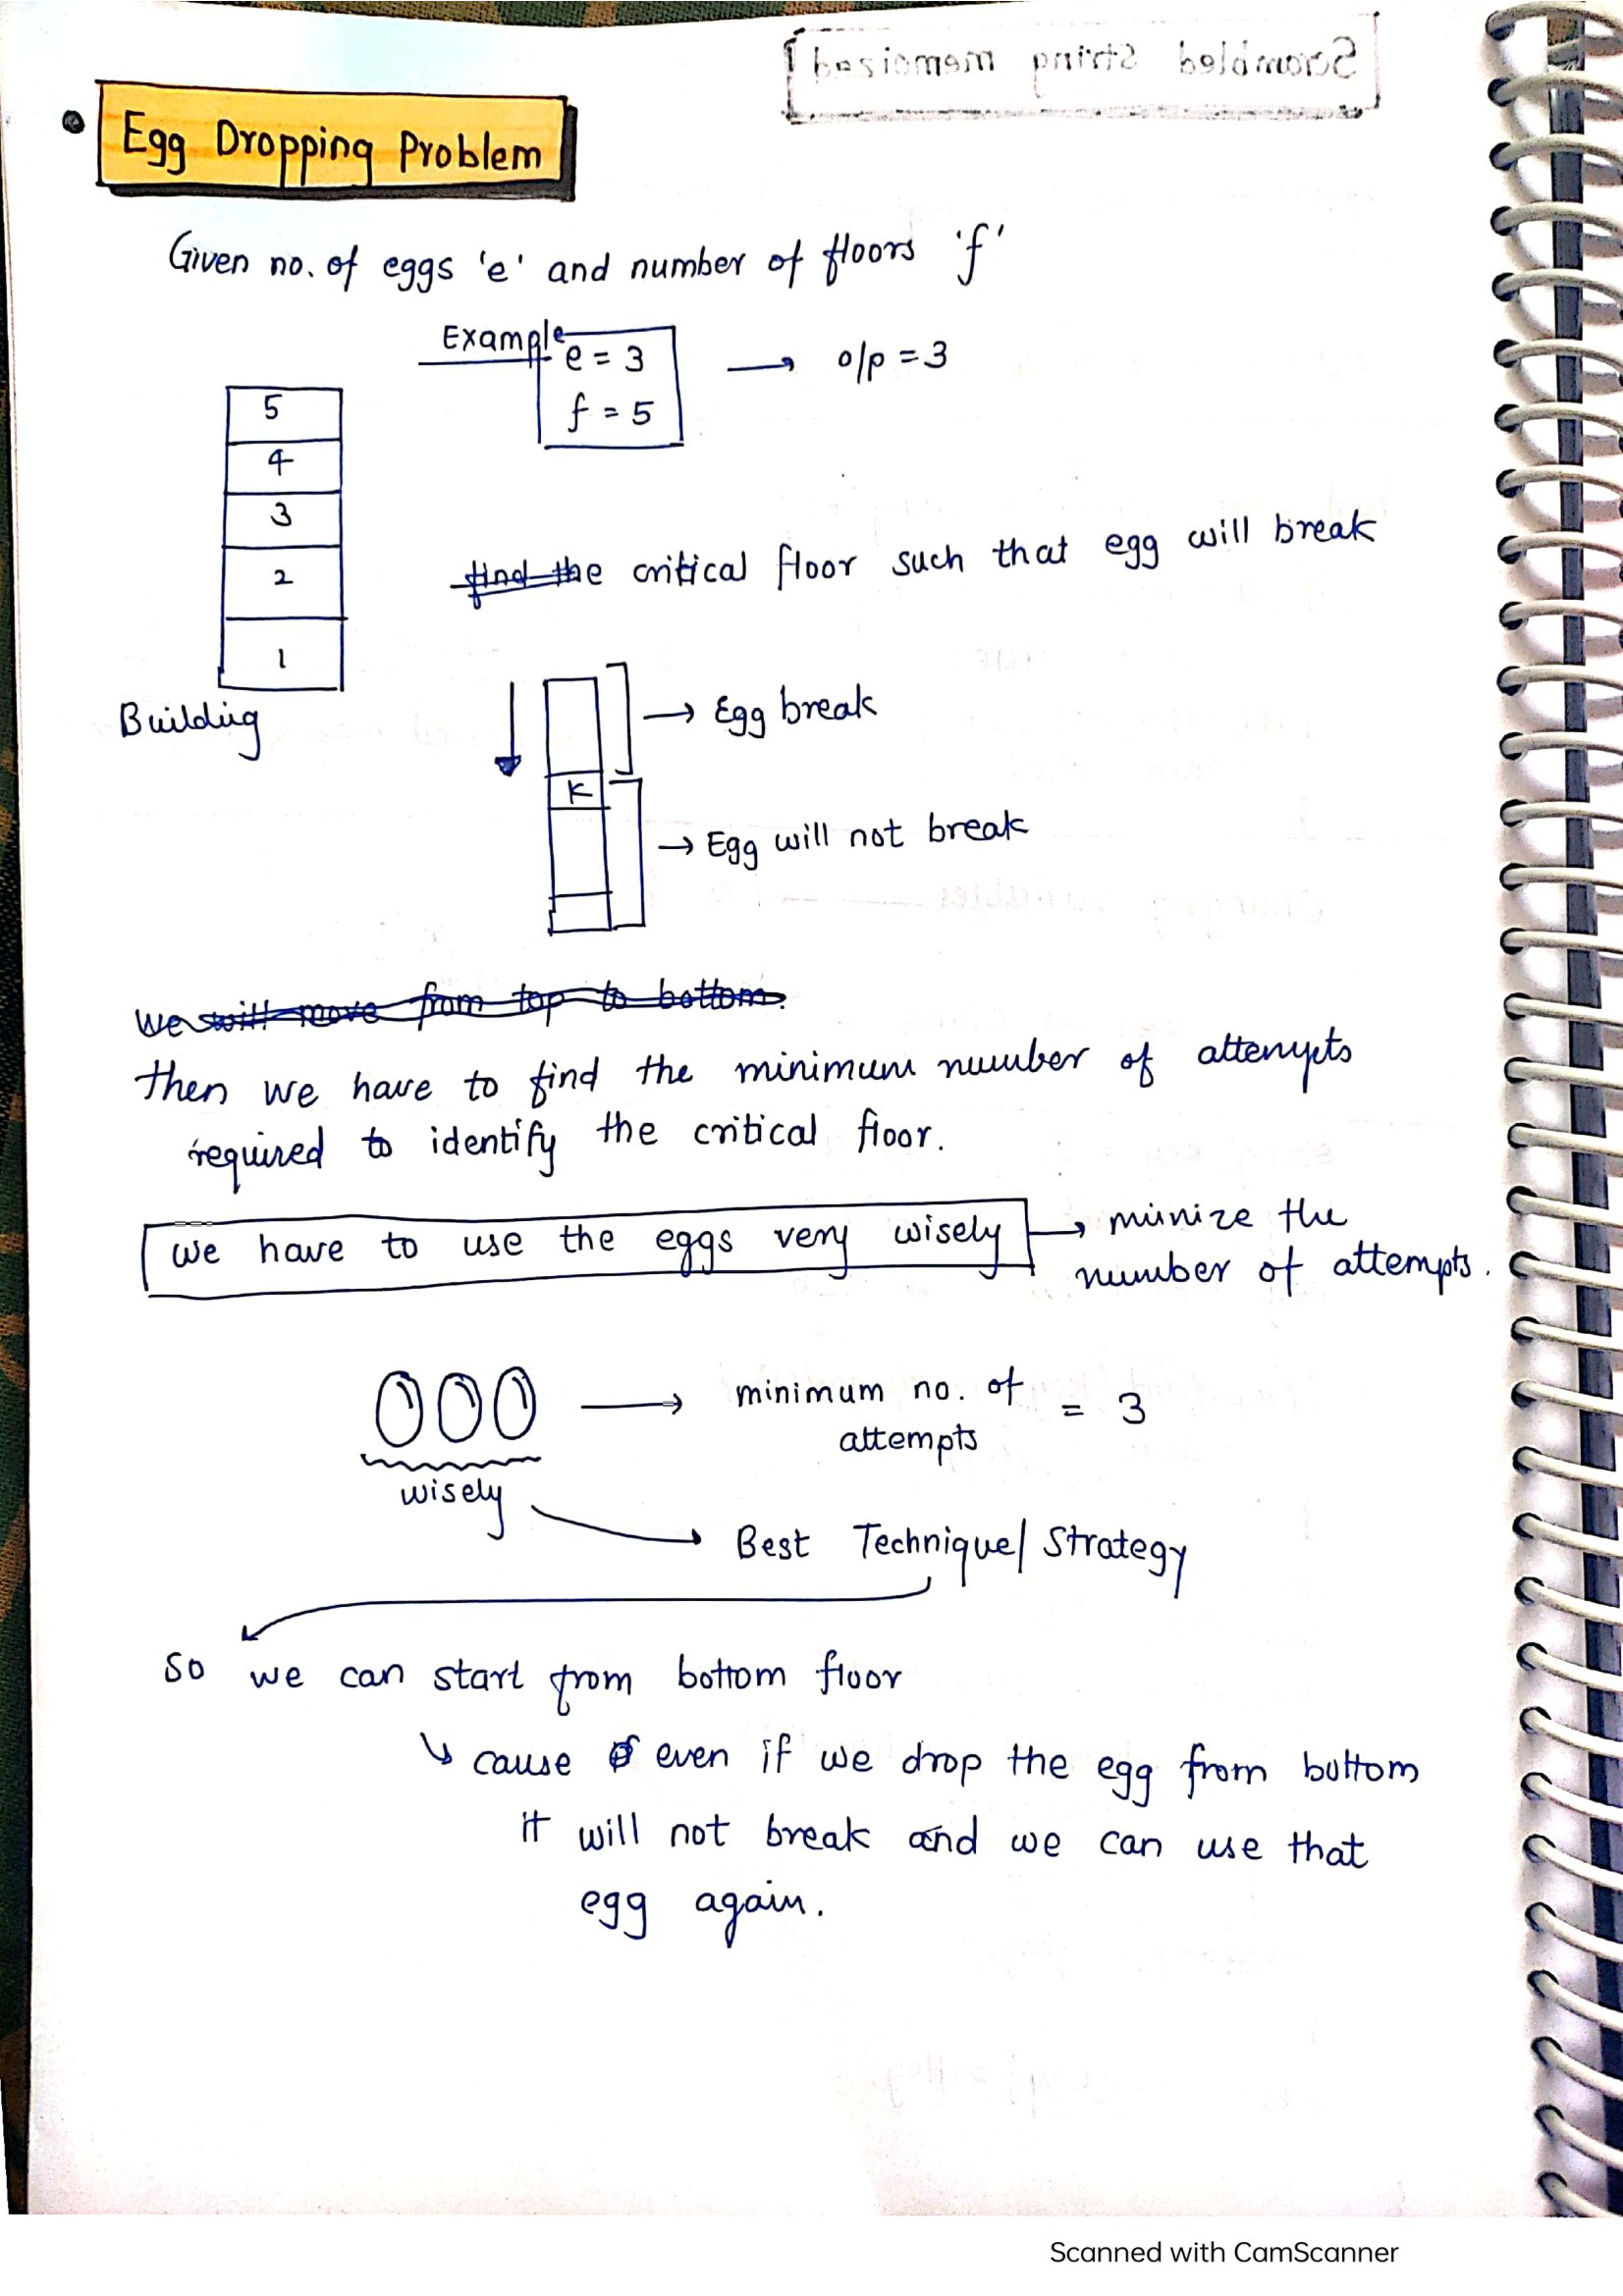 Scrambled String memoized
• Egg Dropping Problem
Given no. of eggs 'e' and number of floors 'f'
Example
e = 3 → o/p = 3
f = 5
5
4
3
2
1
Building
find the critical floor such that egg will break
→ Egg break
K
→ Egg will not break
We will move from top to bottom.
then we have to find the minimum number of attempts
required to identify the critical floor.
we have to use the eggs very wisely → minize the
number of attempts.
→ minimum no. of
attempts = 3
wisely
Best Technique/ Strategy
So we can start from bottom floor
↳ cause even if we drop the egg from bottom
it will not break and we can use that
egg again.
Scanned with CamScanner